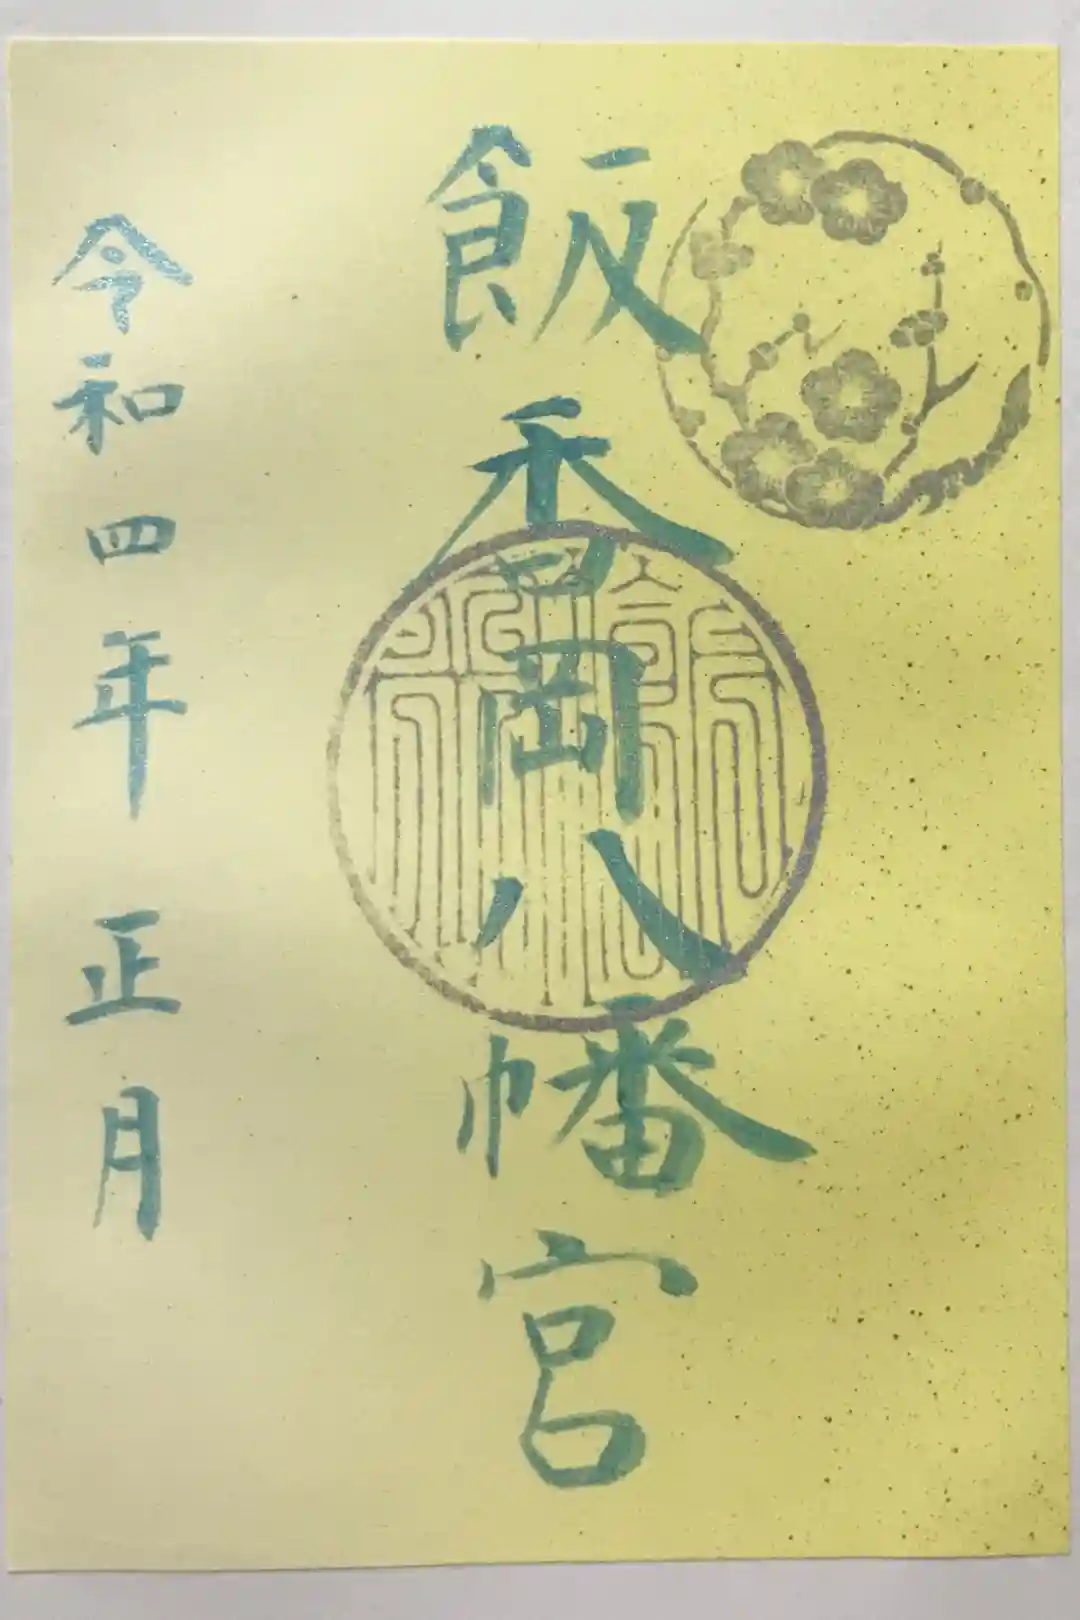 飯香岡八幡宮
令和四年 正月